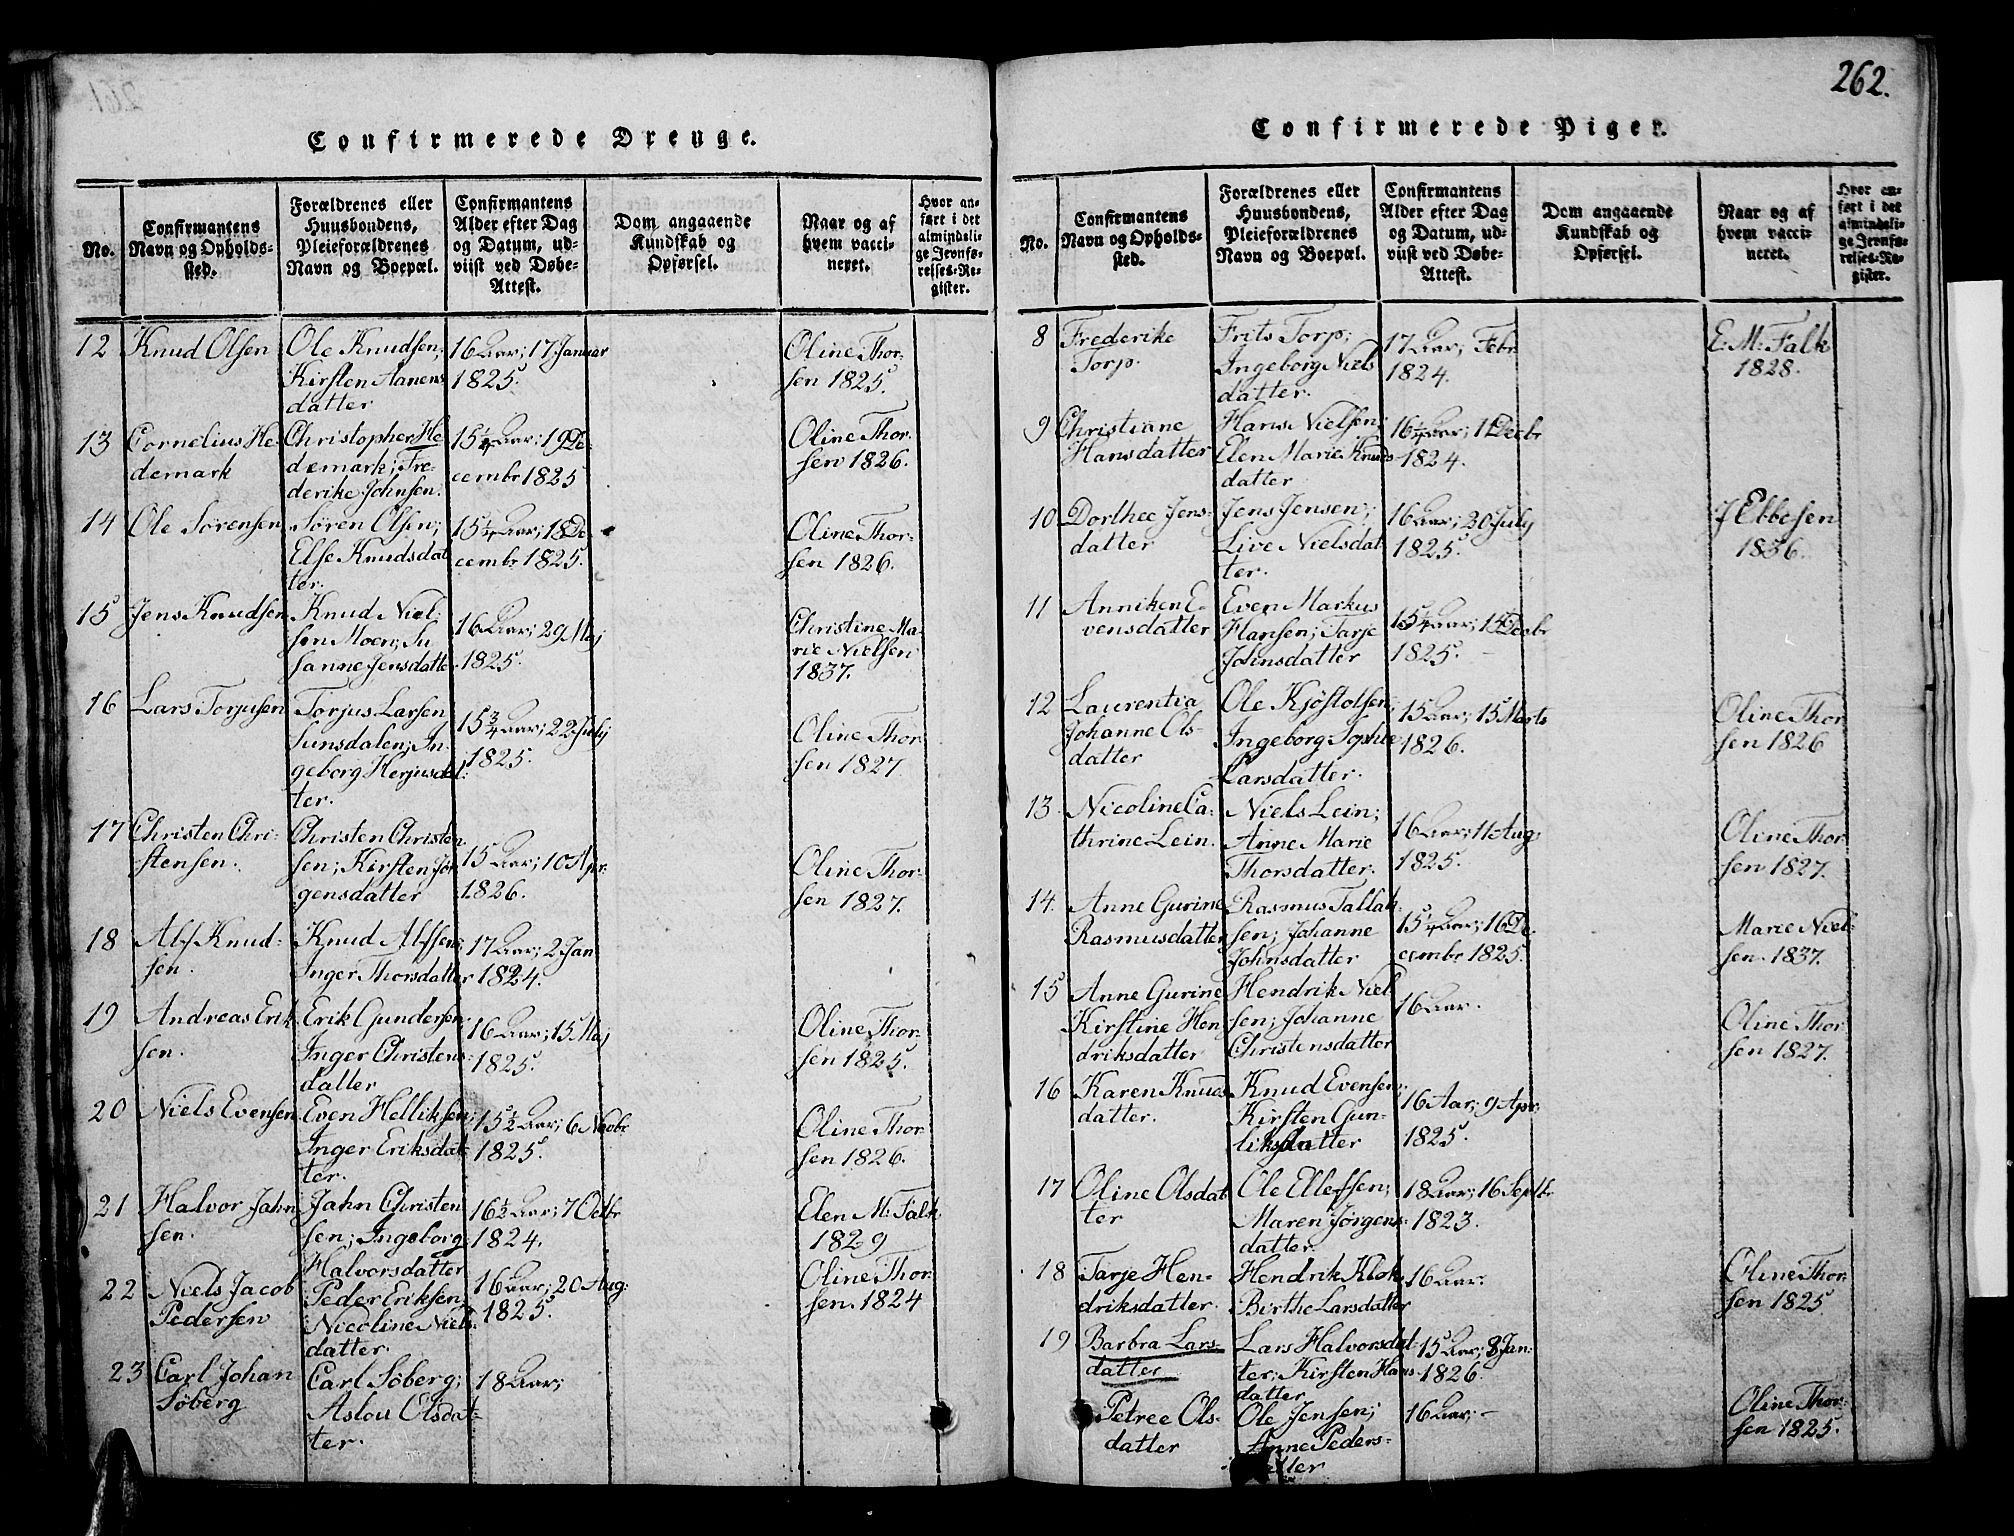 262.
Confirmerede Drenge.
No.
Confirmantens
Navn og Opholds-
sted.
Forældrenes eller
Huusbondens,
Pleieforældrenes
Navn og Boepæl.
Confirmantens
Alder efter Dag
og Datum, ud-
viist ved Døbe-
Attest.
Dom angaaende
Kundskab og
Opførsel.
Naar og af
hvem vacci-
neret.
Hvor an-
ført i det
almindeli-
ge Jevnfø-
relses-Re-
gister.
12 Knud Olsen
Ole Knudsen;
Kirsten Aanens
datter
16 Aar; 17 Januar
1825.
Oline Thor-
sen 1825.
13 Cornelius He-
demark
Christopher He
demark; Fre-
derike Johnsen.
15 1/4 Aar; 19 De-
cembr 1825
Oline Thor-
sen 1826.
14 Ole Sørensen
Søren Olsen;
Else Knudsdat
ter.
15 1/4 Aar; 18 De
cembr 1825.
Oline Thor-
sen 1826.
15 Jens Knudsen
Knud Niel-
sen Moen; Su
sanne Jensdatte
16 Aar; 29 Maj
1825.
Christine Ma-
rie Nielsen
1837.
16 Lars Torjusen
Torjus Larsen
Sunsdalen; In-
geborg Herjusdat-
ter.
15 3/4 Aar; 22 July
1825.
Oline Thor
sen 1827
17 Christen Chri-
stensen.
Christen Christen
sen; Kirsten Jør
gensdatter
15 Aar; 10 Apr.
1826.
Oline Thor-
sen 1827.
18 Alf Knud-
sen.
Knud Alfsen;
Inger Thorsdatter
17 Aar; 2 Jan
1824.
19 Andreas Erik
sen.
Erik Gundersen
Inger Christens-
datter
16 Aar; 15 Maj
1825.
Oline Thor-
sen 1825.
20 Niels Evensen
Even Helliksen;
Inger Eriksdat-
ter.
15 1/2 Aar; 6 Novbr
1825.
Oline Thor-
sen 1826.
21 Halvor Jahn
sen.
Jahn Christen
sen; Ingeborg
Halvorsdatter
16 1/2 Aar; 7 Octbr
1824.
Elen M. Falk
1829
22 Niels Jacob
Pedersen
Peder Eriksen
Nicoline Niels-
datter.
16 Aar; 20 Aug:
1825.
Oline Thor-
sen. 1824
23 Carl Johan
Søberg
Carl Søberg;
Aslou Olsdat-
ter.
18 Aar;
Confirmerede Piger.
No.
Confirmantens
Navn og Opholds-
sted.
Forældrenes eller
Huusbondens,
Pleieforældrenes
Navn og Boepæl.
Confirmantens
Alder efter Dag
og Datum, ud-
viist ved Døbe-
Attest.
Dom angaaende
Kundskab og
Opførsel.
Naar og af
hvem vacci-
neret.
Hvor an-
ført i det
almindeli-
ge Jevnfø-
relses-Re-
gister.
8 Frederike
Torp.
Frits Torp;
Ingeborg Niels
datter.
17 Aar; Febr
1824.
E. M. Falk
1828.
9 Christiane
Hansdatter
Hans Nielsen;
Elen Marie Knuds
datter
16 1/4 Aar; 11 Decbr
1824.
10 Dorthee Jens-
datter
Jens Jensen;
Live Nielsdat-
ter.
16 Aar; 30 July
1825.
J Ebbesen
1836.
11 Anniken E-
vensdatter
Even Markus
Hansen; Tarje
Johnsdatter
15 1/4 Aar; 14 Decbr
1825.
12 Laurentia
Johanne Ols-
datter
Ole Kjøstolsen;
Ingeborg
Larsdatter.
15 Aar; 15 Marts
1826.
Oline Thor
sen 1826
13 Nicoline Ca-
thrine Lein.
Niels Lein;
Anne Marie
Thorsdatter.
16 Aar; 11 Aug:
1825.
Oline Thor-
sen 1827.
14. Anne Gurine
Rasmusdatter
Rasmus Tallak-
sen; Johanne
Johnsdatter
15 1/4 Aar; 16 De.
cembr 1825.
Marie Niel-
sen. 1837.
15 Anne Gurine
Kirstine Hen
driksdatter
Hendrik Niel
sen; Johanne
Christensdatter
16 Aar.
Oline Thor
sen 1827.
16 Karen Knuds
datter.
Knud Evensen;
Kirsten Gun-
liksdatter
16 Aar; 9 Apr:
1825.
17 Oline Olsdat
ter
Ole Ellefsen;
Maren Jørgens-
datter.
18 Aar; 16 Septbr
1823.
18 Tarje Hen-
driksdatter.
Hendrik Klok
Birthe Larsdatter
16 Aar.
Oline Thor-
sen 1825
19 Barbra Lars-
datter
Lars Halvorsdat-
ter; Kirsten Hans
datter
15 Aar; 8 Jan:
1826.
Petree Ols-
datter
Ole Jensen;
Anne Peders-
datter
16 Aar; -
Oline Thor-
sen 1825.